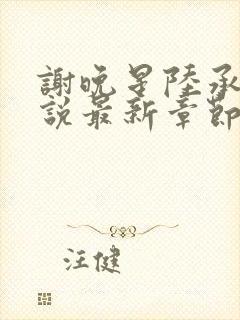 謝晚星陸承
說最新章節
汪健